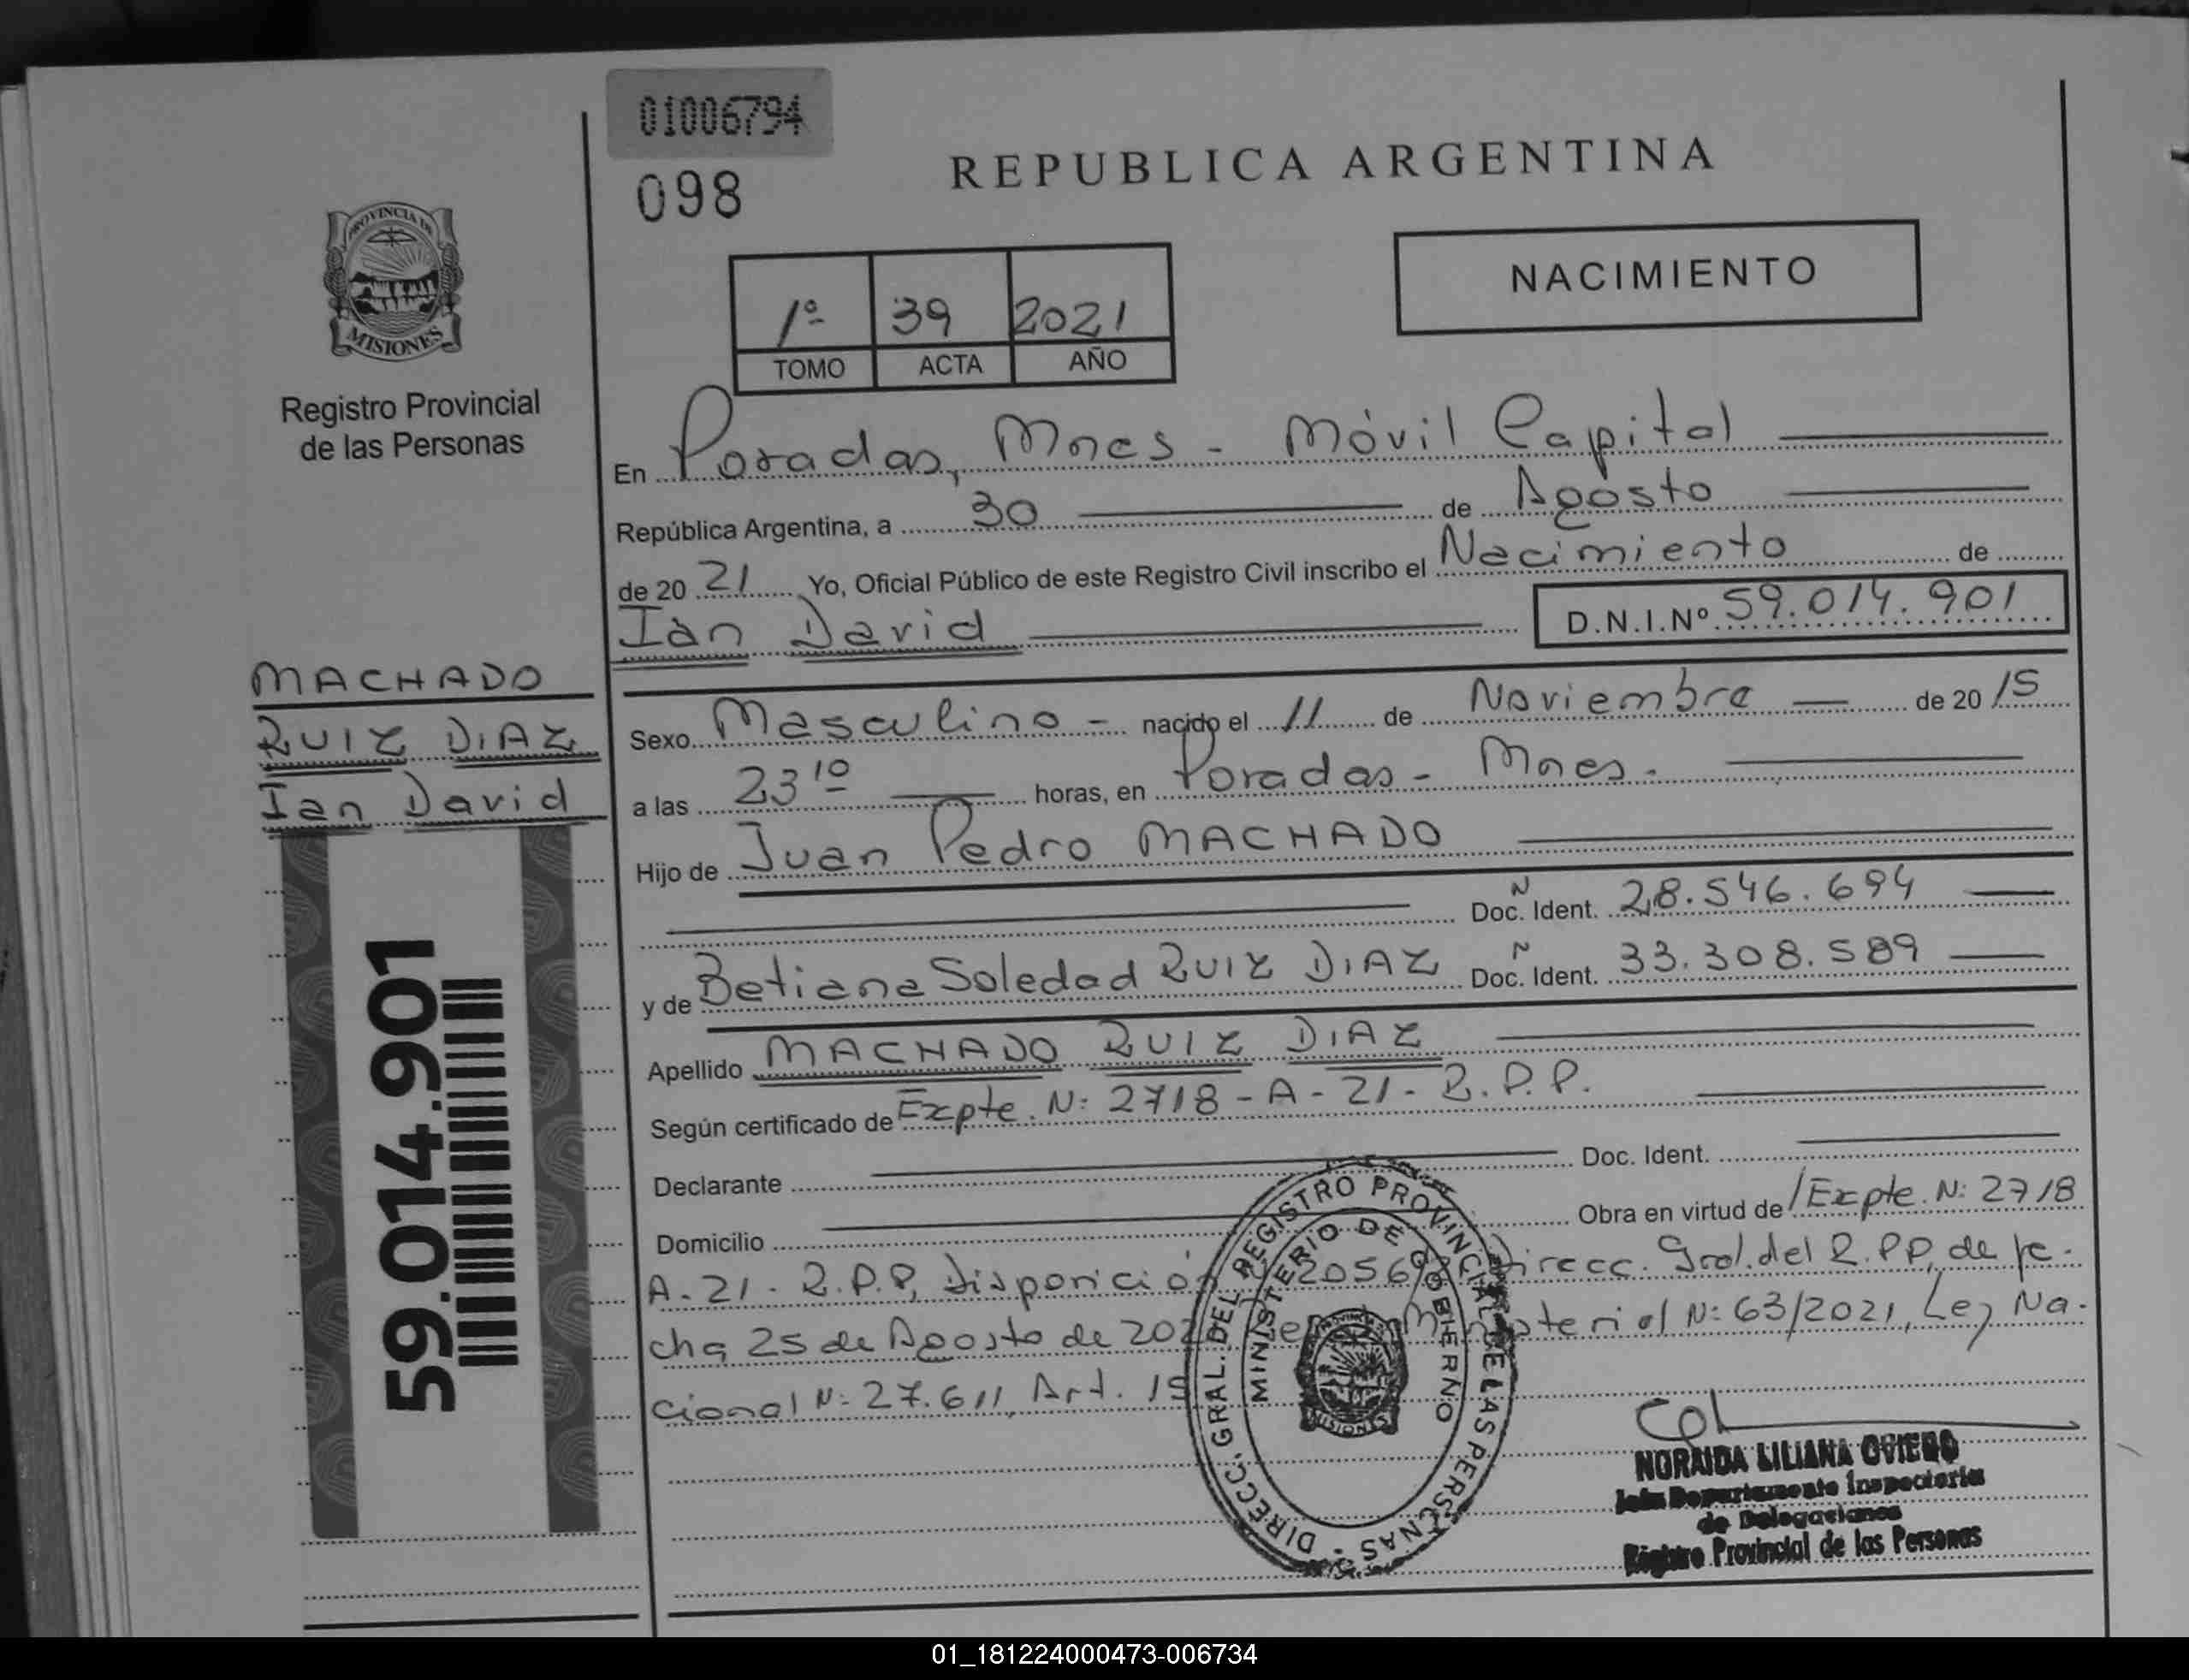 01006794
098
REPUBLICA ARGENTINA
PROVINCIA DE
MISIONES
Registro Provincial
de las Personas
1º 39 2021
TOMO ACTA AÑO
NACIMIENTO
En Posadas, Mnes - Móvil Capital
República Argentina, a 30 de Agosto
de 20 21 Yo, Oficial Público de este Registro Civil inscribo el Nacimiento de
Ian David D.N.I.Nº 59.014.901
MACHADO
RUIZ DIAZ
Ian David
59.014.901
Sexo Masculino - nacido el 11 de Noviembre de 20 15
a las 23 10 horas, en Posadas - Mnes.
Hijo de Juan Pedro MACHADO
Doc. Ident. N 28.546.694
y de Betiana Soledad RUIZ DIAZ Doc. Ident. N 33.308.589
Apellido MACHADO RUIZ DIAZ
Según certificado de Expte. N: 2718 - A - 21 - R.P.P.
Declarante Doc. Ident.
Domicilio Obra en virtud de / Expte. N: 2718
A - 21 - R.P.P, Disposición 2056 Direcc. Gral. del R.P.P, de fe-
cha 25 de Agosto de 202 Ministerial N: 63/2021, Ley Na-
cional N: 27.611, Art. 15
DIRECC. GRAL. DEL REGISTRO PROVINCIAL DE LAS PERSONAS
MINISTERIO DE GOBIERNO
MISIONES
NORAIDA LILIANA OVIEDO
Jefa Departamento Inspectoria
de Delegaciones
Registro Provincial de las Personas
01_181224000473-006734